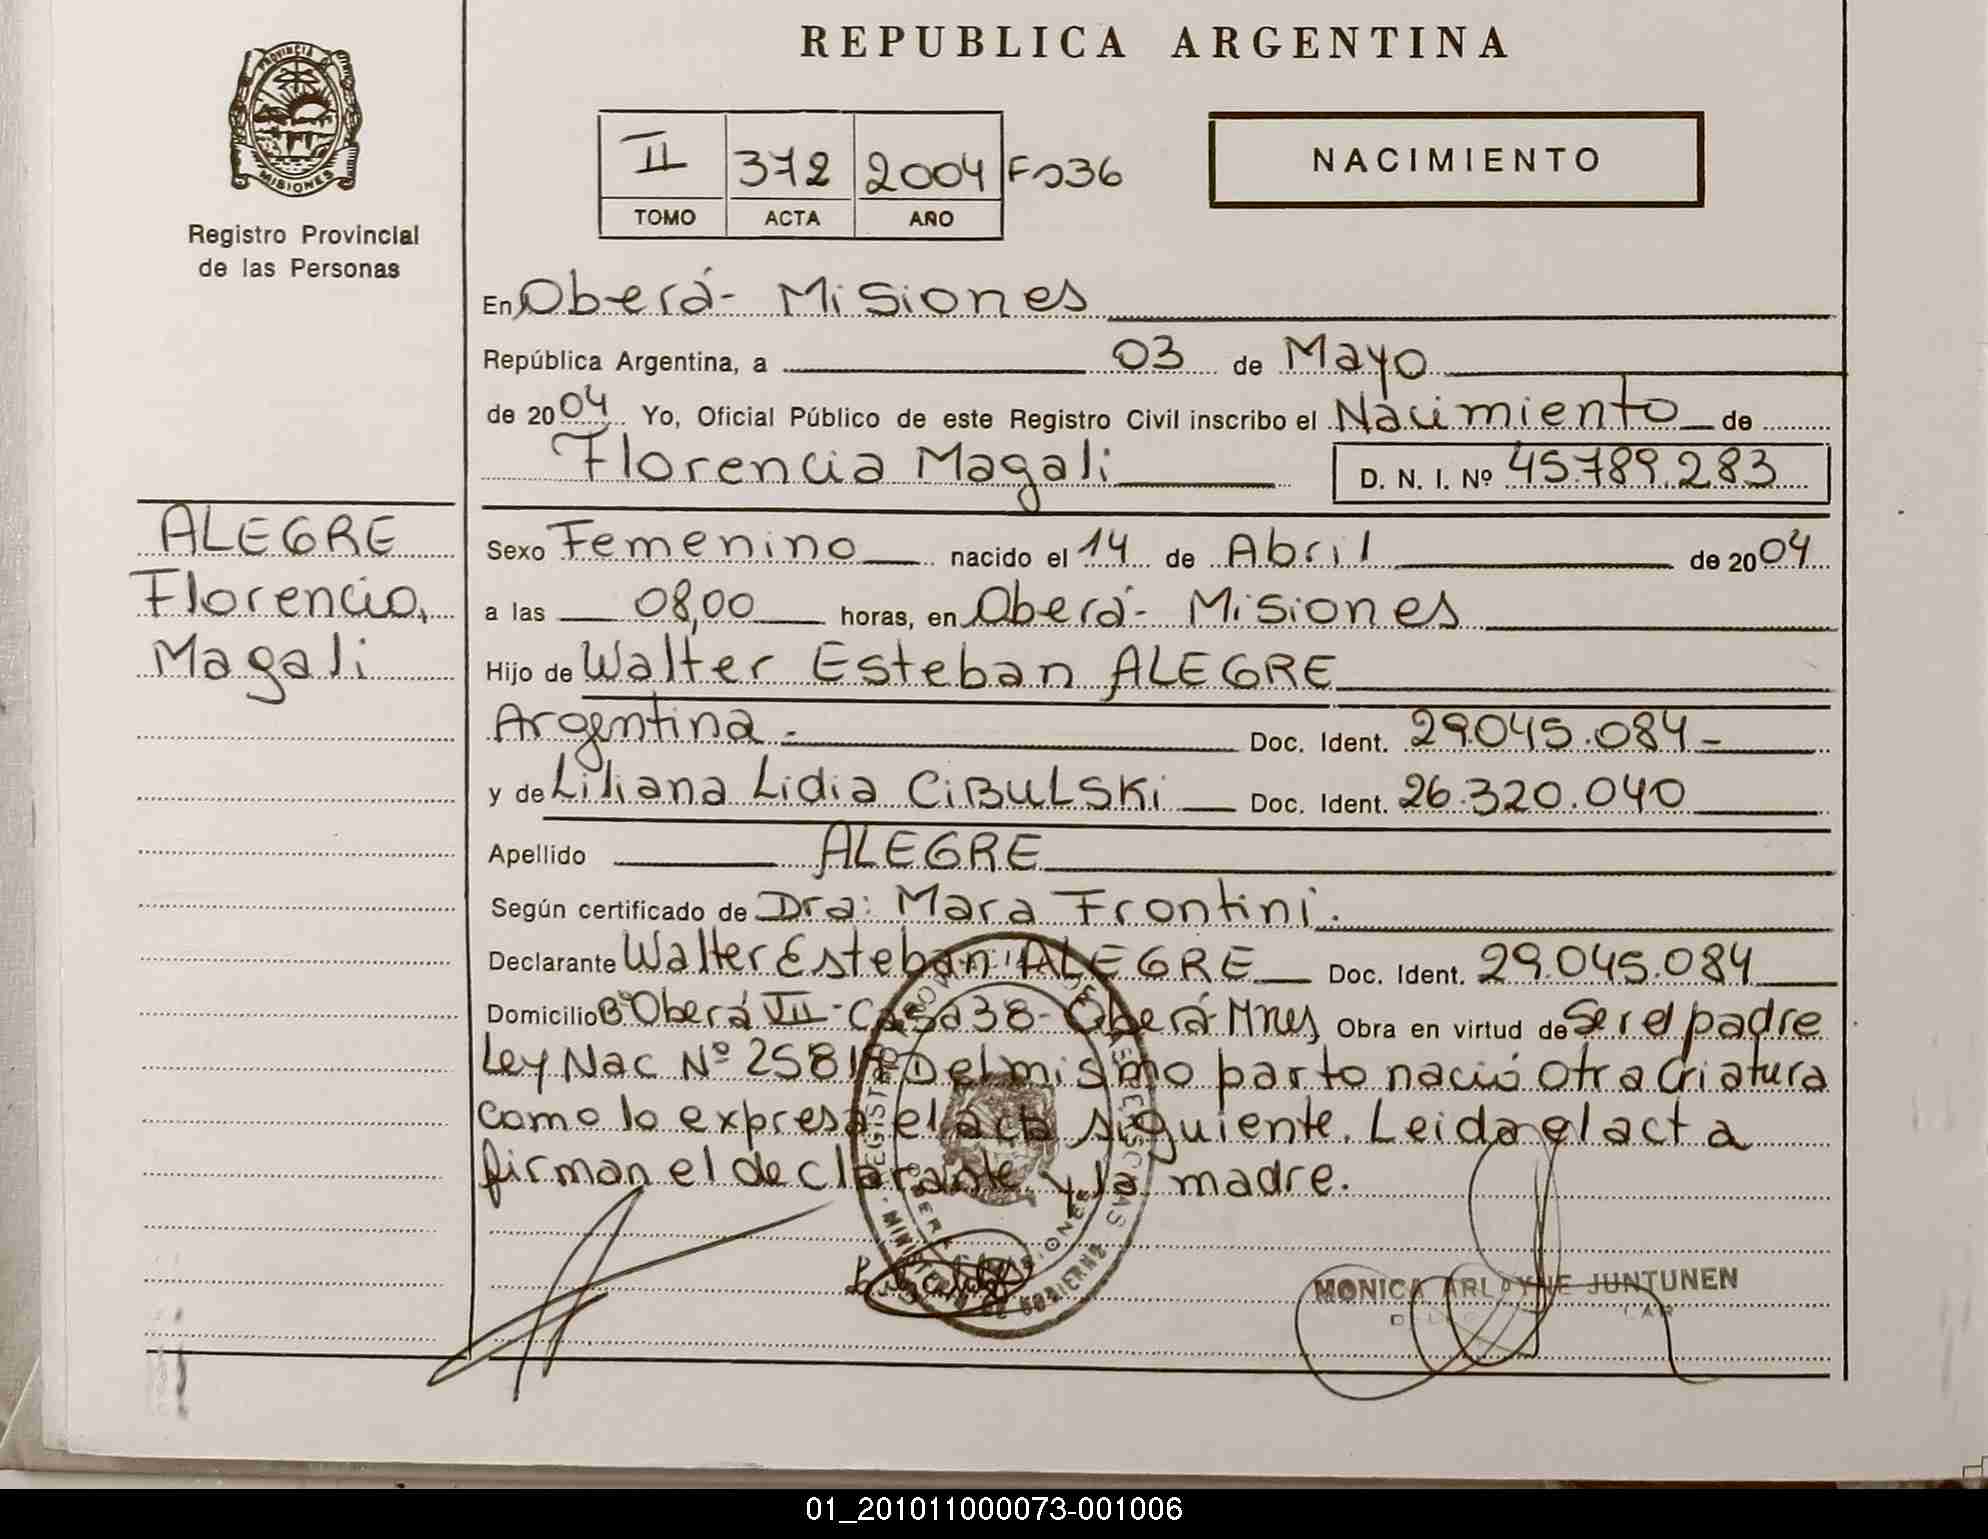 REPUBLICA ARGENTINA
PROVINCIA DE MISIONES
Registro Provincial
de las Personas
II 372 2004 Fº036
TOMO ACTA AÑO
NACIMIENTO
En Oberá - Misiones
República Argentina, a 03 de Mayo
de 2004 Yo, Oficial Público de este Registro Civil inscribo el Nacimiento de
Florencia Magali D. N. I. Nº 45.789.283
ALEGRE
Florencia,
Magali
Sexo Femenino nacido el 14 de Abril de 2004
a las 08,00 horas, en Oberá - Misiones
Hijo de Walter Esteban ALEGRE
Argentina.- Doc. Ident. 29.045.084-
y de Liliana Lidia CiBULSKi Doc. Ident. 26.320.040
Apellido ALEGRE
Según certificado de Dra: Mara Frontini.
Declarante Walter Esteban ALEGRE Doc. Ident. 29.045.084
Domicilio Bº Oberá VII - Casa 38 - Oberá - Mnes Obra en virtud de Ser el padre
Ley Nac Nº 25819 Del mismo parto nació otra criatura
como lo expresa el acta siguiente. Leida el acta
firman el declarante y la madre.
MINISTERIO DE GOBIERNO
MONICA ARLAYNE JUNTUNEN
01_201011000073-001006